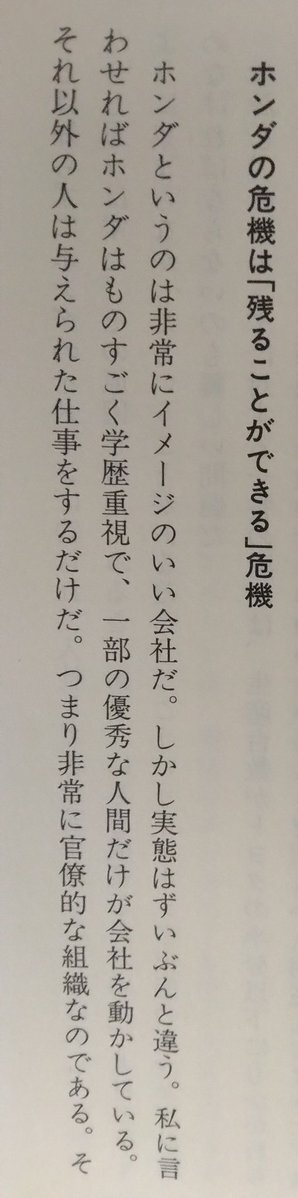 ホンダの危機は「残ることができる」危機
ホンダというのは非常にイメージのいい会社だ。しかし実態はずいぶんと違う。私に言
わせればホンダはものすごく学歴重視で、一部の優秀な人間だけが会社を動かしている。
それ以外の人は与えられた仕事をするだけだ。つまり非常に官僚的な組織なのである。そ